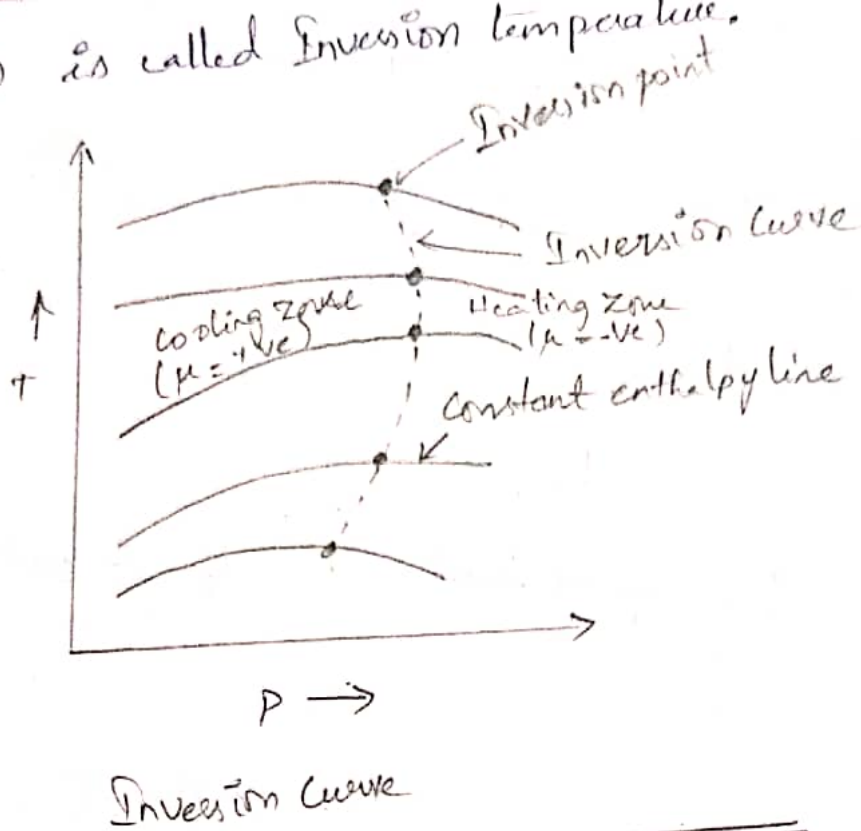 is called Inversion temperature.
Inversion point
Inversion Curve
cooling zone
(μ = +ve)
Heating zone
(μ = -ve)
T
constant enthalpy line
P
Inversion Curve